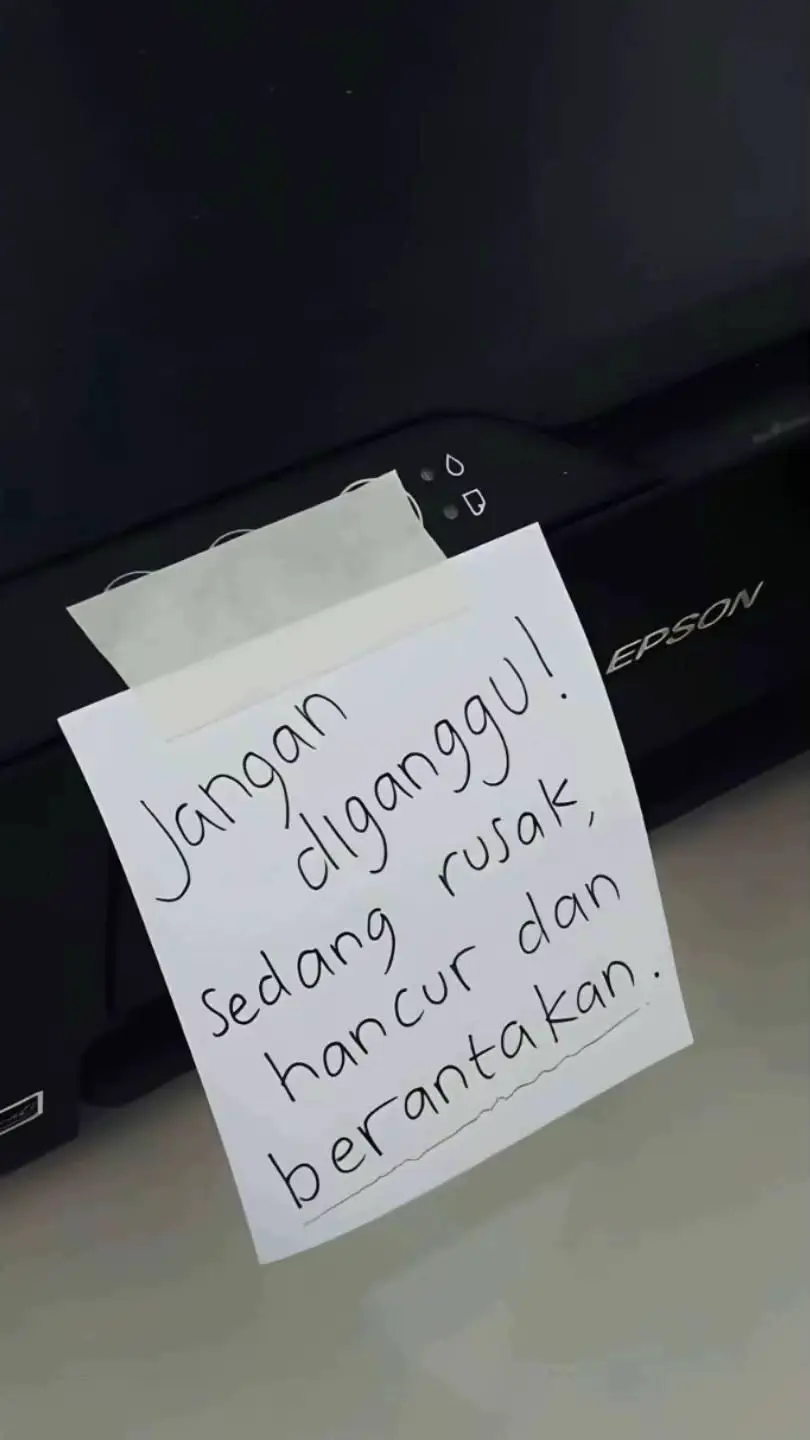 EPSON
Jangan
diganggu!
Sedang rusak,
hancur dan
berantakan.